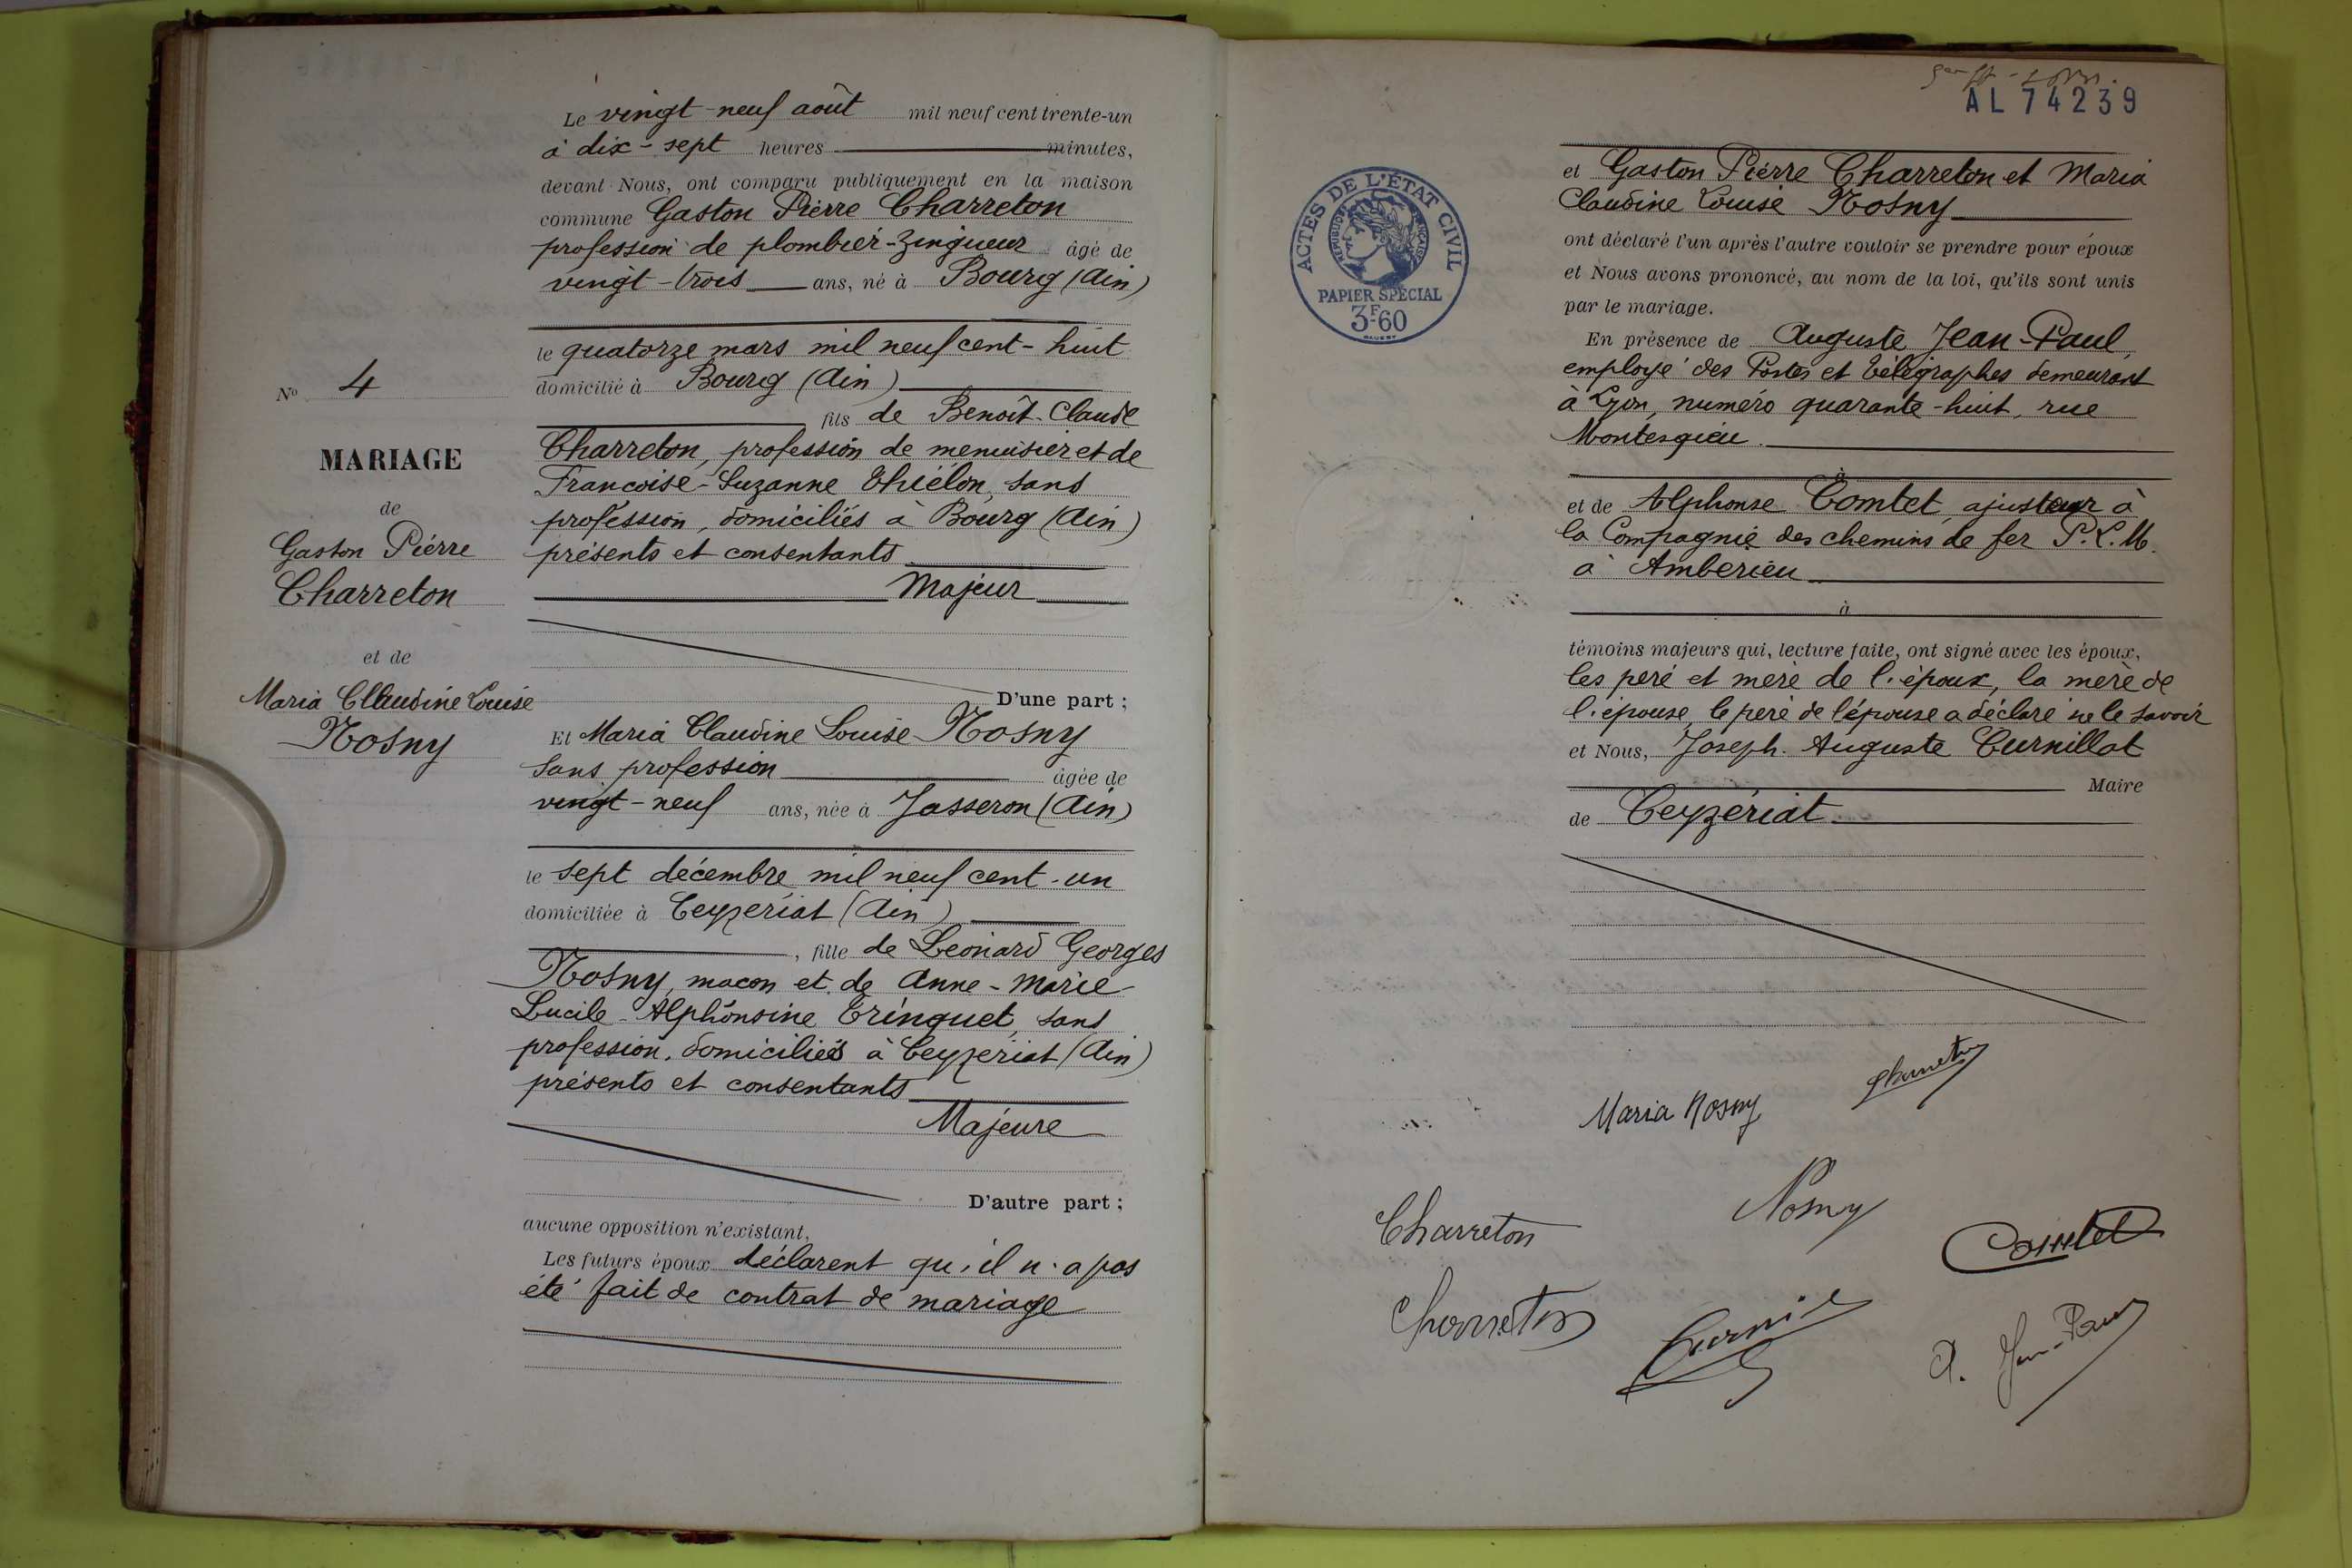 Le vingt-neuf août mil neuf cent trente-un
à dix-sept heures minutes,
devant Nous, ont comparu publiquement en la maison
commune Gaston Pierre Charreton
profession de plombier-zingueur âgé de
vingt-trois ans, né à Bourg (Ain)
le quatorze mars mil neuf cent-huit
domicilié à Bourg (Ain)
fils de Benoît-Claude
Charreton, profession de menuisier et de
Françoise-Suzanne Thiélon, sans
profession, domiciliés à Bourg (Ain)
présents et consentants
Majeur
D'une part ;
Et Maria Claudine Louise Nosny
Sans profession âgée de
vingt-neuf ans, née à Jasseron (Ain)
le sept décembre mil neuf cent-un
domiciliée à Ceyzériat (Ain)
, fille de Léonard Georges
Nosny, maçon et de Anne-Marie
Lucile-Alphonsine Trinquet, sans
profession, domiciliés à Ceyzériat (Ain)
présents et consentants
Majeure
D'autre part ;
aucune opposition n'existant,
Les futurs époux déclarent qu'il n'a pas
été fait de contrat de mariage
No 4
MARIAGE
de
Gaston Pierre
Charreton
et de
Maria Cllaudine Louise
Nosny
AL 74239
ACTES DE L'ÉTAT CIVIL
RÉPUBLIQUE FRANÇAISE
PAPIER SPÉCIAL
3F.60
et Gaston Pierre Charreton et Maria
Claudine Louise Nosny
ont déclaré l'un après l'autre vouloir se prendre pour époux
et Nous avons prononcé, au nom de la loi, qu'ils sont unis
par le mariage.
En présence de Auguste Jean-Paul,
employé des Postes et Télégraphes demeurant
à Lyon, numéro quarante-huit, rue
Montesqieu.
à
et de Alphonse Comtet, ajusteur à
la Compagnie des chemins de fer P.L.M.
à Amberieu
à
témoins majeurs qui, lecture faite, ont signé avec les époux,
les père et mère de l'époux, la mère de
l'épouse, le père de l'épouse a déclaré ne le savoir
et Nous, Joseph-Auguste Curnillat
Maire
de Ceyzériat
Charreton
Maria Nosny
Nosny
Charreton
Comtet
Charreton
A. Jean-Paul